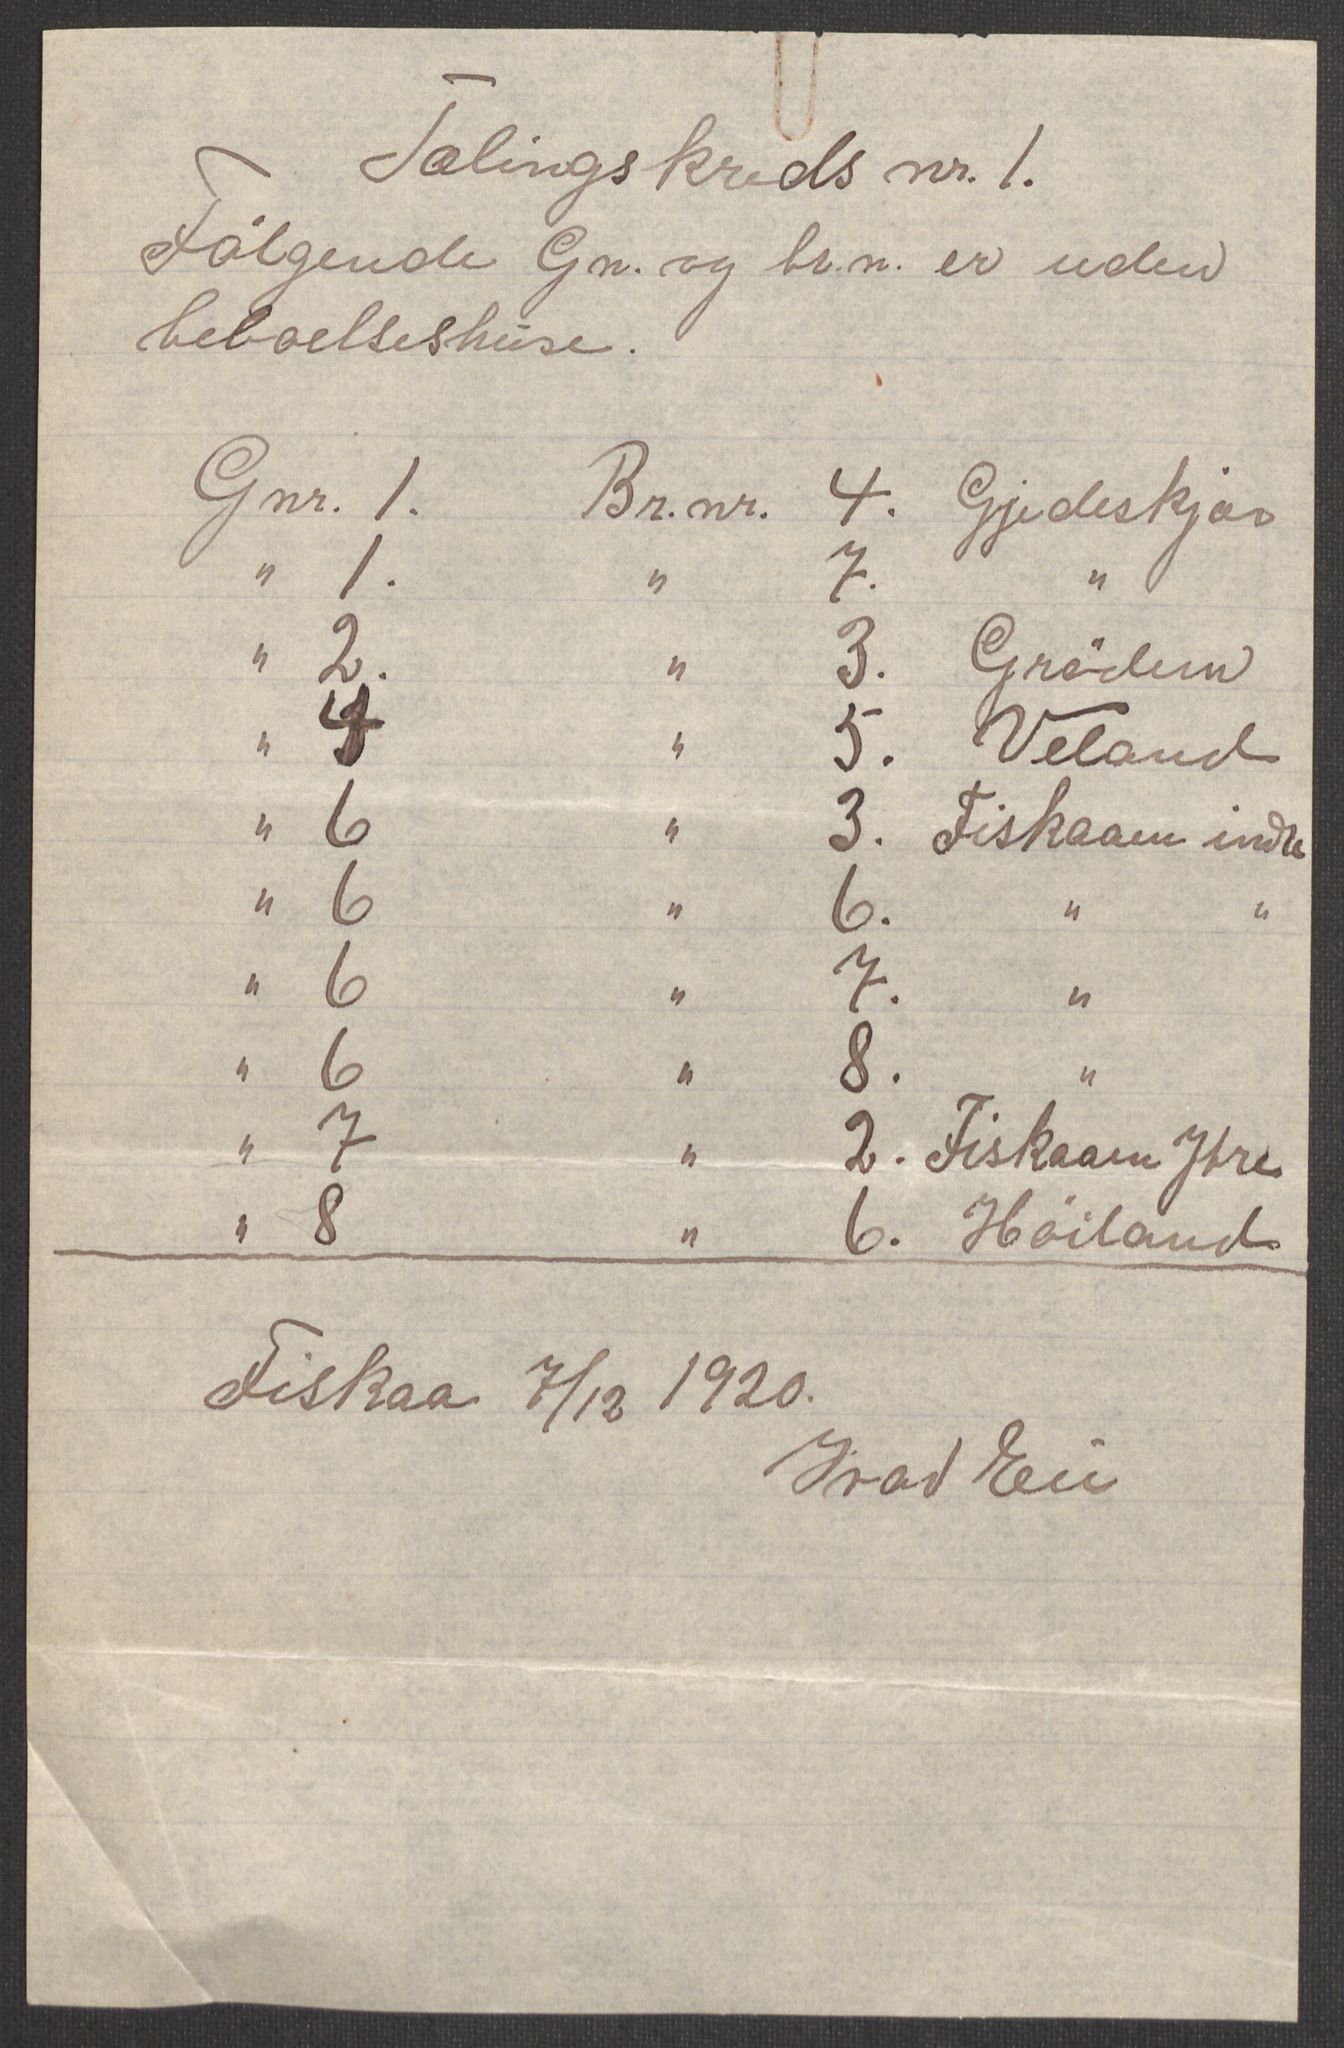 Tælingskreds nr. 1.
Fölgende Gn. og br.n. er uden
beboelseshuse.
Gnr. 1. Br. nr. 4. Gjedeskjær
" 1. " 7. "
" 2. " 3. Grödem
" 4 " 5. Veland
" 6 " 3. Fiskaaen indre
" 6 " 6. " "
" 6 " 7. "
" 6 " 8. "
" 7 " 2. Fiskaaen Ytre
" 8 " 6. Höiland
Fiskaa 7/12 1920.